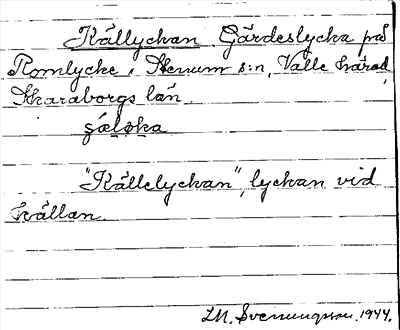 Källyckan. Gärdeslycka på
Romlycke, Stenum s:n, Valle härad,
Skaraborgs län.
"Källelyckan", lyckan vid
källan.
LM. Svenungsson. 1944.